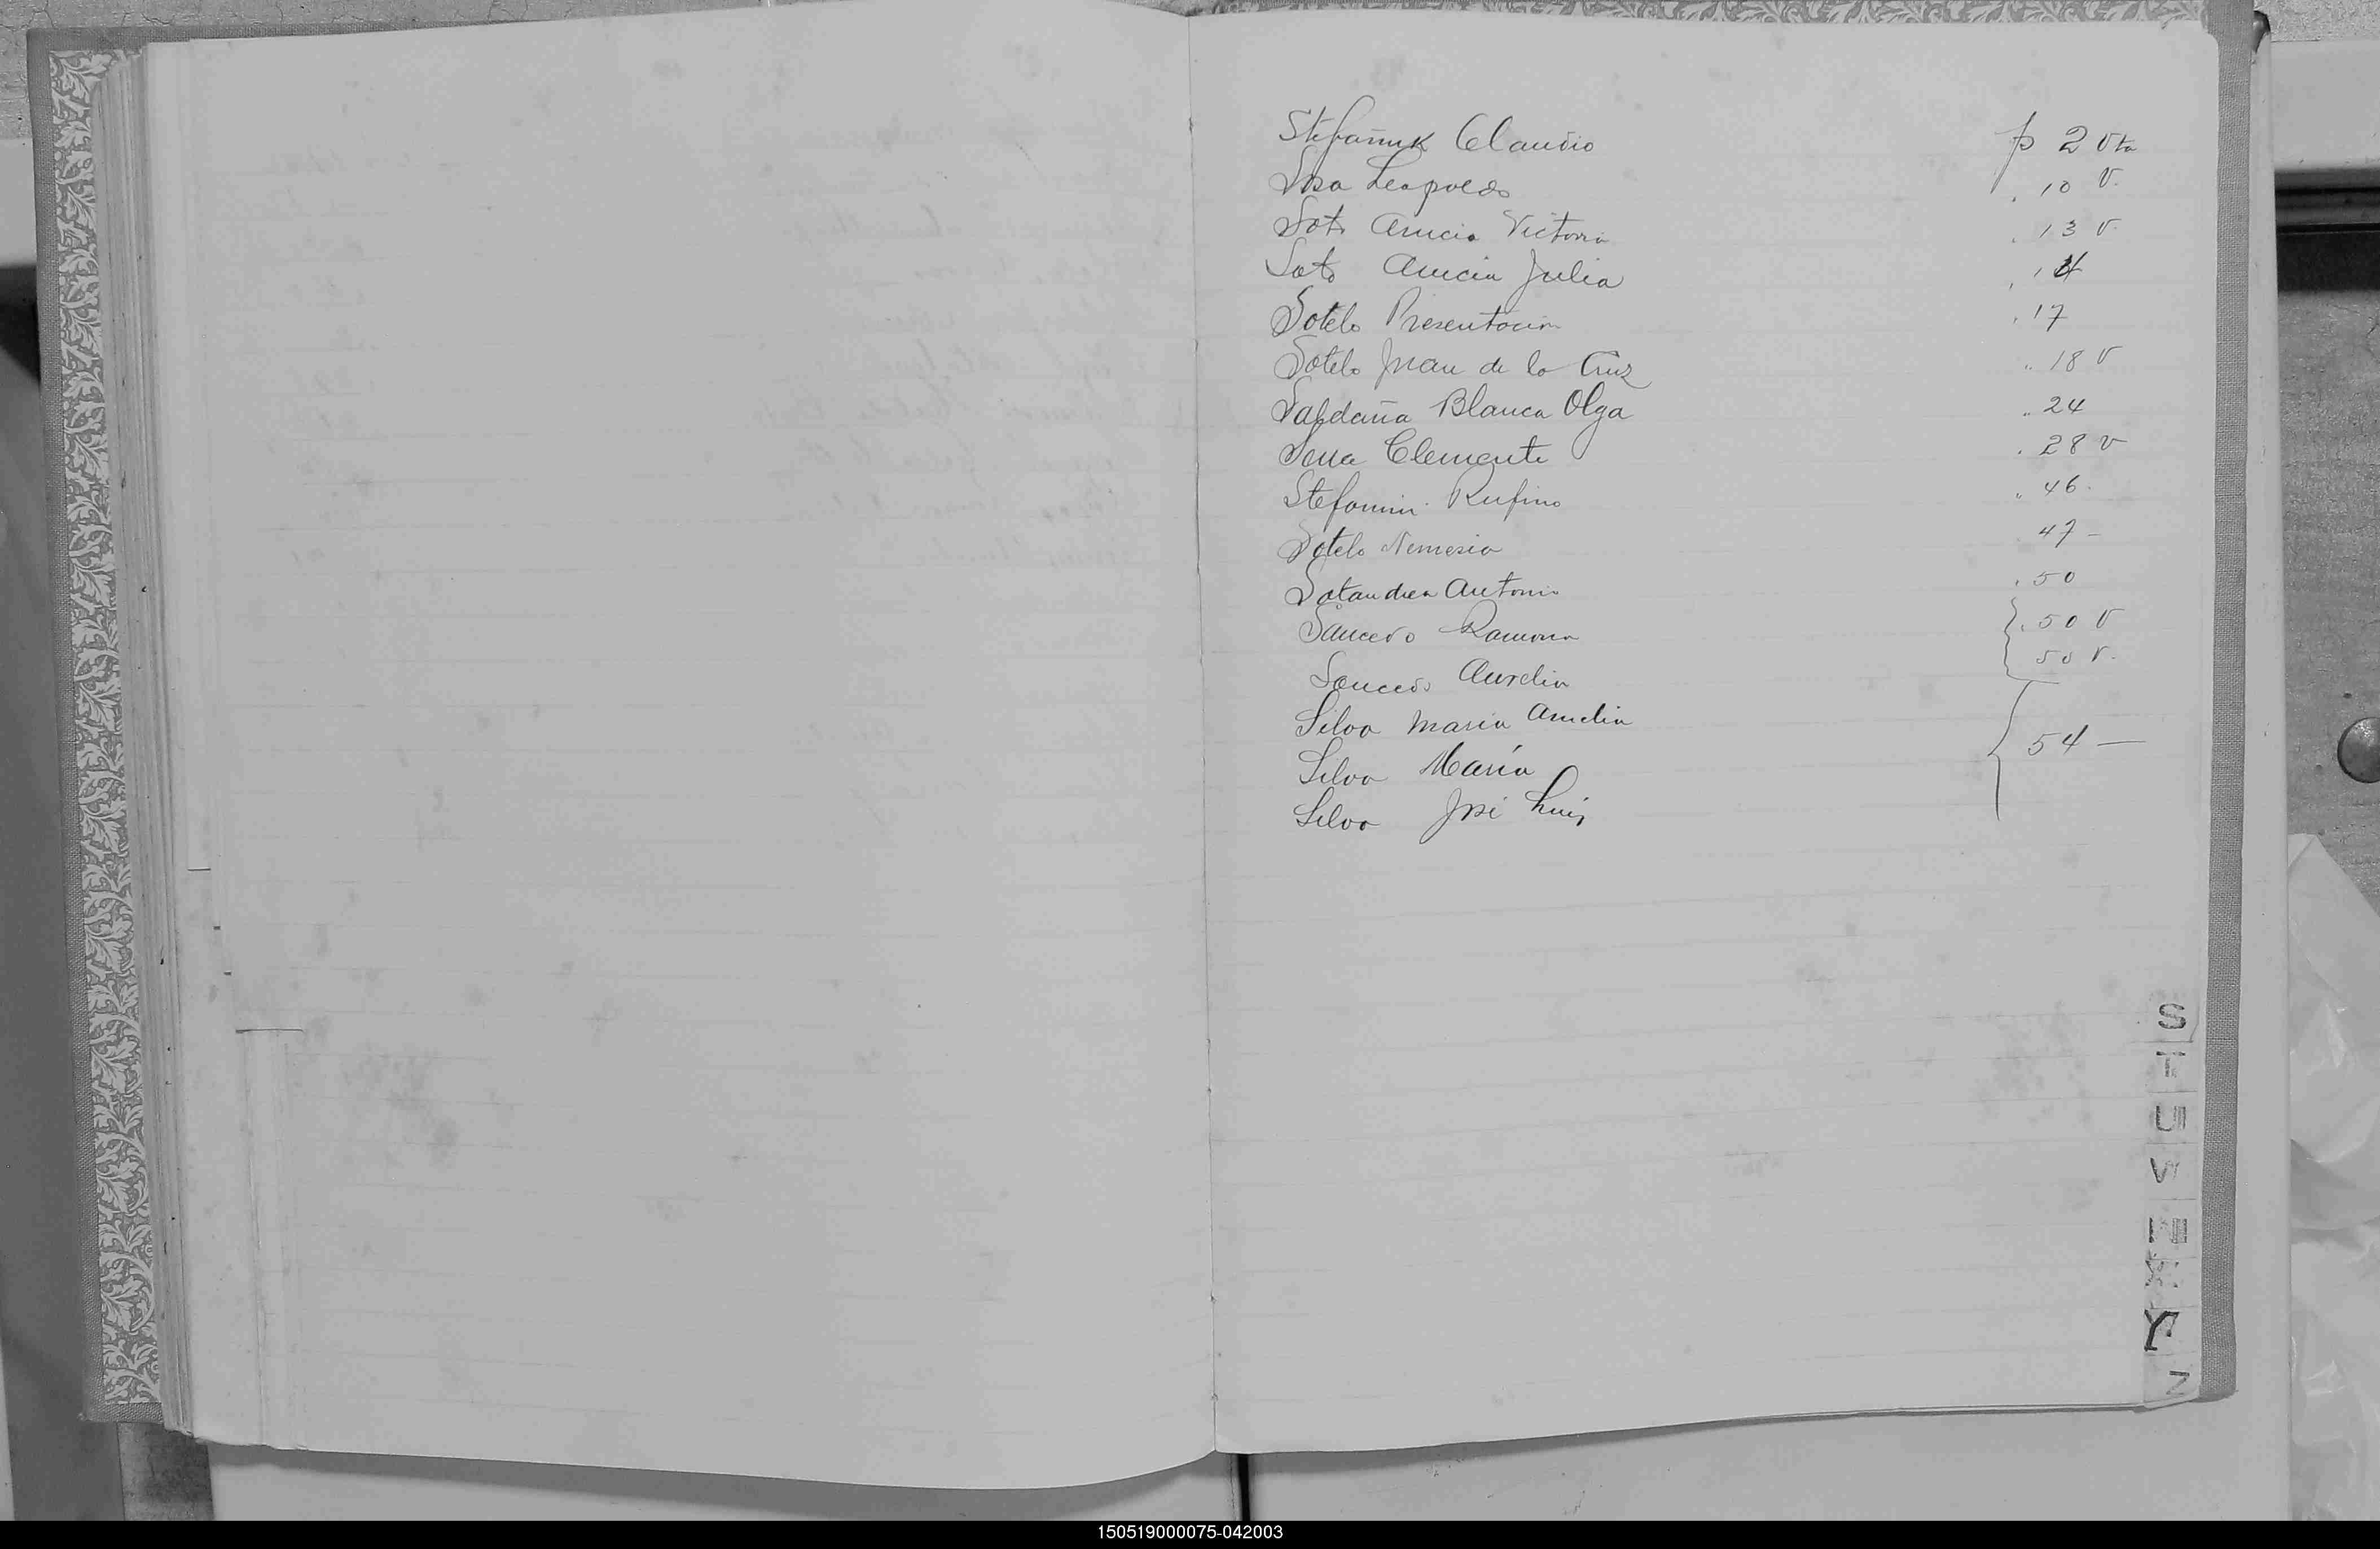 Stefañuk Claudio p 2 Vta
Sosa Leopoldo " 10 V.
Soto Amicia Victoria " 13 V.
Soto Amicia Julia " 14
Sotelo Presentacion " 17
Sotelo Juan de la Cruz " 18 V
Saldaña Blanca Olga " 24
Clemente " 28 V
Stefanini Rufino " 46.
Sotelo Nemesia 47 -
Antonio " 50
Saucedo Ramona " 50 V
Saucedo Aurelia 50 V.
Silva Maria Amelia
Silva María 54 —
Silva José Luis
S
T
U
W
Y
Z
150519000075-042003